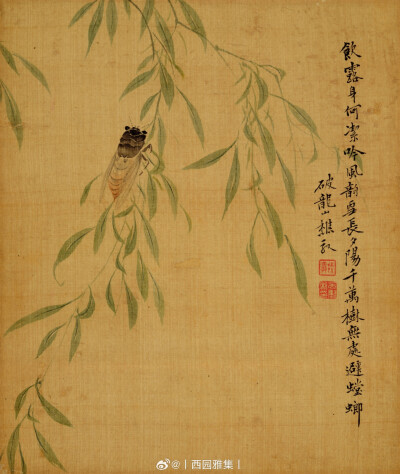 飲露身何潔吟風韻更長夕陽千萬樹無處避螳螂
破龍山樵
@丨西园雅集丨